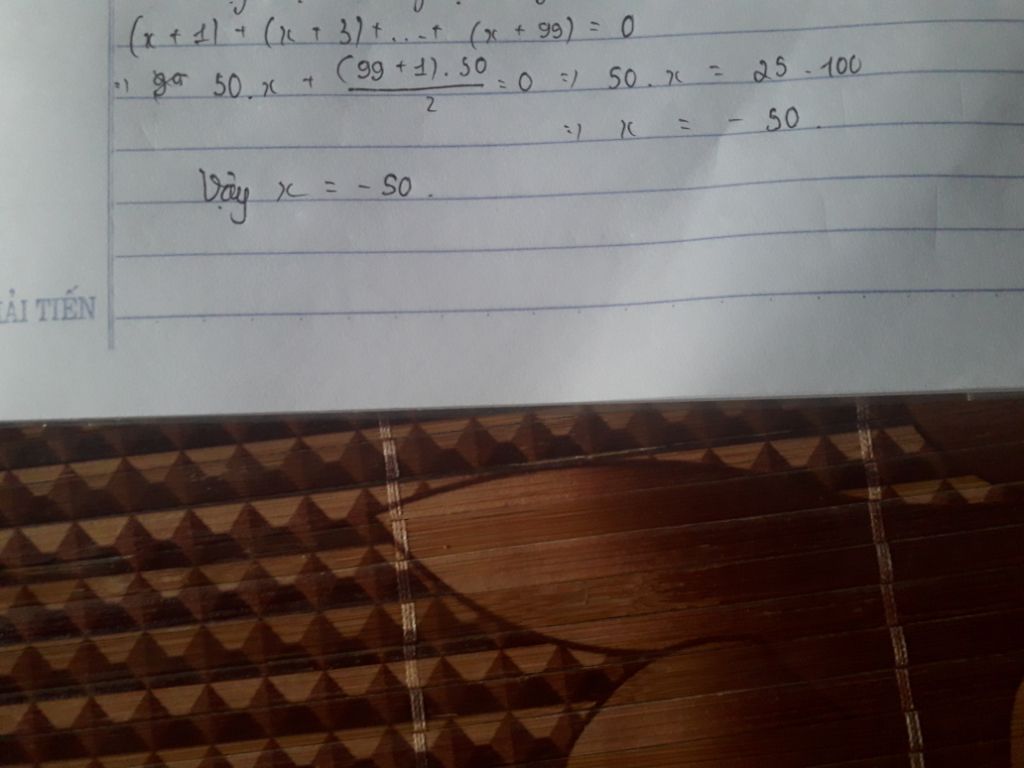 (x + 1) + (x + 3) + ... + (x + 99) = 0
=> 50.x + (99 + 1).50 / 2 = 0 => 50.x = 25.100
=> x = - 50.
Vậy x = - 50.
ẢI TIẾN